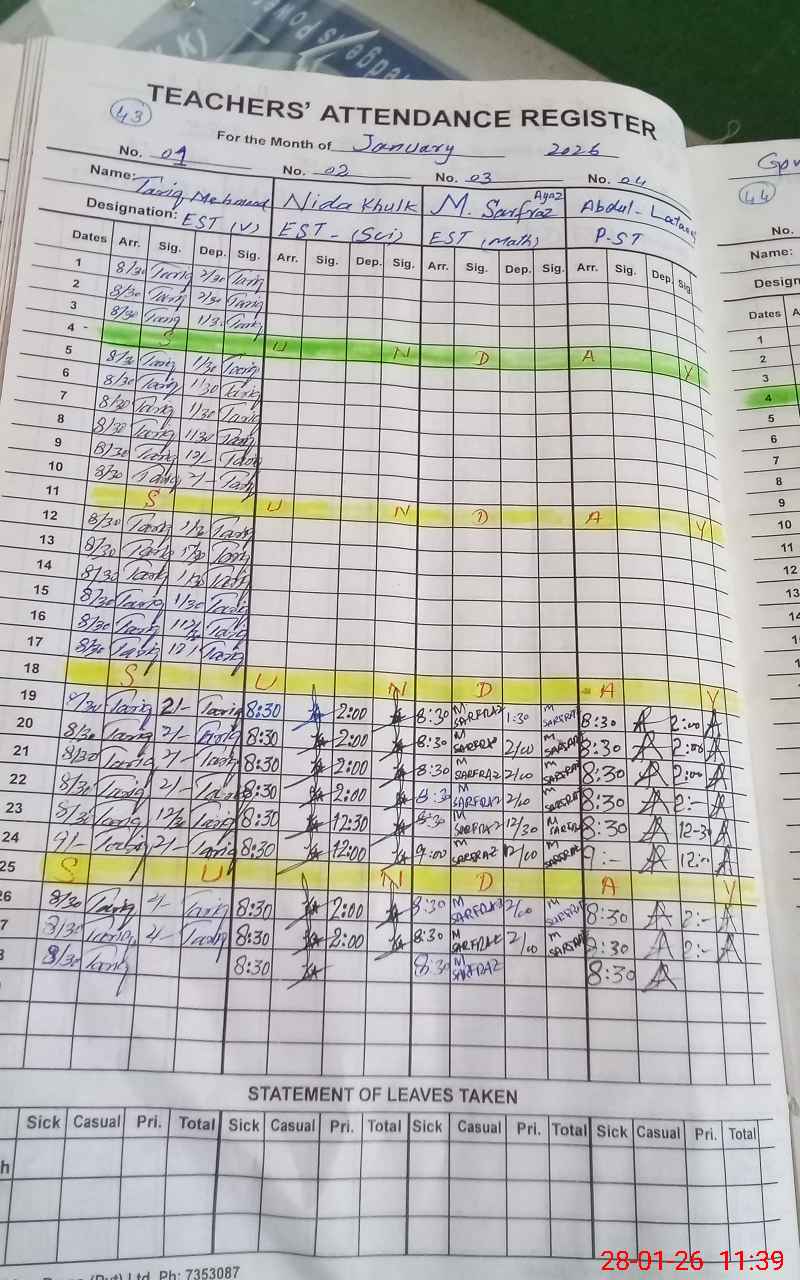 TEACHERS' ATTENDANCE REGISTER
43
For the Month of January 2026
No. 01 No. 02 No. 03 No. 04
Name: Tariq Nida Khulk M. Sarfraz Ayaz Abdul-
Designation: EST (V) EST-(Sci) EST (Math) P.ST
Dates Arr. Sig. Dep. Sig. Arr. Sig. Dep. Sig. Arr. Sig. Dep. Sig. Arr. Sig. Dep. Sig.
1 8/30 Tariq 2/30 Tariq
2 8/30 Tariq 2/30 Tariq
3 8/30 Tariq Tariq
4 S U N D A Y
5 8/30 Tariq 1/30 Tariq
6 8/30 Tariq 1/30 Tariq
7 8/30 Tariq 1/30 Tariq
8 8/30 Tariq 1/30 Tariq
9 8/30 Tariq 12/- Tariq
10 8/30 Tariq 2/- Tariq
11 S U N D A Y
12 8/30 Tariq Tariq
13 8/30 Tariq Tariq
14 8/30 Tariq 1/30 Tariq
15 8/30 Tariq 1/30 Tariq
16 8/30 Tariq Tariq
17 8/30 Tariq Tariq
18 S U N D A Y
19 8/30 Tariq 2/- Tariq 8:30 2:00 8:30 M SARFRAZ 1:30 M SARFRAZ 8:30 A 2:00 A
20 8/30 Tariq 2/- Tariq 8:30 2:00 8:30 M SARFRAZ 2/00 M SARFRAZ 8:30 A 2:00 A
21 8/30 Tariq 2/- Tariq 8:30 2:00 8:30 M SARFRAZ 2/00 M SARFRAZ 8:30 A 2:00 A
22 8/30 Tariq 2/- Tariq 8:30 2:00 8:30 M SARFRAZ 2/00 M SARFRAZ 8:30 A 2:- A
23 8/30 Tariq 12/30 Tariq 8:30 12:30 8:30 M SARFRAZ 12/30 M SARFRAZ 8:30 A 12-30 A
24 9/- Tariq 2/- Tariq 8:30 12:00 9:00 M SARFRAZ 12/00 M SARFRAZ 9:- A 12:- A
25 S U N D A Y
26 8/30 Tariq 2/- Tariq 8:30 2:00 8:30 M SARFRAZ 2/00 M SARFRAZ 8:30 A 2:- A
7 8/30 Tariq 2/- Tariq 8:30 2:00 8:30 M SARFRAZ 2/00 M SARFRAZ 8:30 A 2:- A
8/30 Tariq 8:30 8:30 M SARFRAZ 8:30 A
STATEMENT OF LEAVES TAKEN
Sick Casual Pri. Total Sick Casual Pri. Total Sick Casual Pri. Total Sick Casual Pri. Total
h
(Pvt) Ltd. Ph: 7353087
44
No.
Name:
Dates
1
2
3
4
5
6
7
8
9
10
11
12
13
28-01-26 11:39